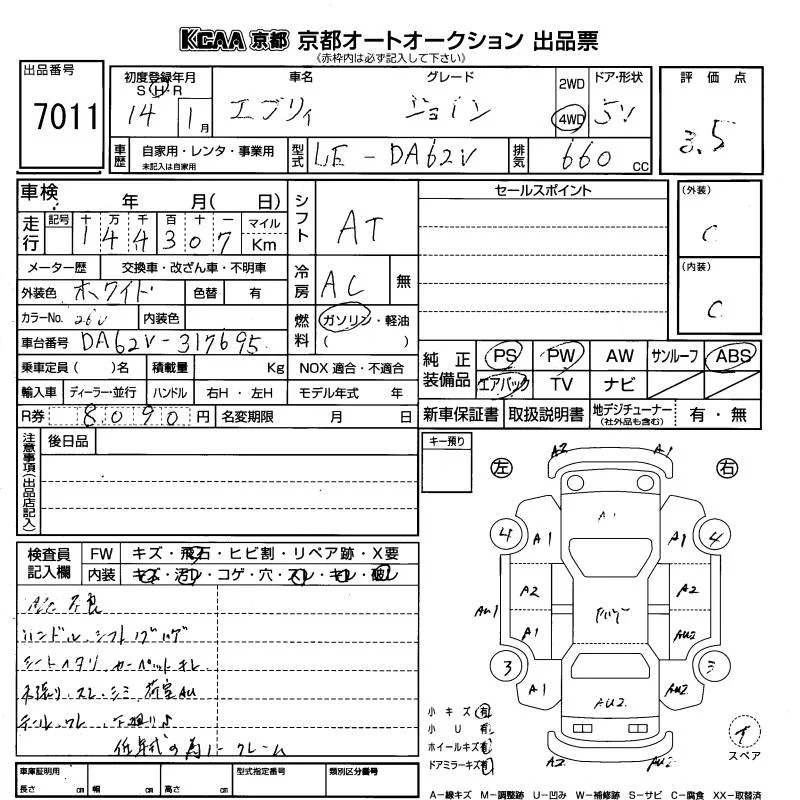 KCAA 京都 京都オートオークション 出品票
(赤枠内は必ず記入して下さい)
出品番号
7011
初度登録年月
S H R
14 1月
車名
エブリィ
グレード
ジョイン
2WD
4WD
ドア・形状
5V
評価点
3.5
車歴
自家用・レンタ・事業用
未記入は自家用
型式
LE-DA62V
排気
660 CC
車検 年 月( 日)
シフト
AT
セールスポイント
(外装)
C
走行
記号 十 万 千 百 十 一 マイル
1 4 4 3 0 7 Km
メーター歴 交換車・改ざん車・不明車
冷房
AC 無
(内装)
C
外装色 ホワイト 色替 有
カラーNo. 26U 内装色
燃料
ガソリン・軽油
( )
車台番号 DA62V-317695
純正装備品
PS PW AW サンルーフ ABS
エアバック TV ナビ
乗車定員( )名 積載量 Kg NOX 適合・不適合
輸入車 ディーラー・並行 ハンドル 右H・左H モデル年式 年
R券 8090円 名変期限 月 日
新車保証書 取扱説明書 地デジチューナー(社外品も含む) 有・無
注意事項(出品店記入)
後日品
キー預り
左 右
A2 A1
A1
4 A1 A1 4
A2 A2
AU1
A1 AU2
3 A1 AU2 3
AU2
A2 AU2
検査員記入欄
FW キズ・飛石・ヒビ割・リペア跡・X要
内装 キズ・汚れ・コゲ・穴・スレ・キレ・破れ
A/C不良
ハンドル、シフトノブハゲ
シートヘタリ、カーペットキレ
内張り、スレ、シミ、荷室AU
テール、ワレ、下廻りサ
低年式の為ノークレーム
小キズ有
小U有
ホイールキズ有
ドアミラーキズ有
スペア
車庫証明用 長さ cm 幅 cm 高さ cm
型式指定番号
類別区分番号
A-線キズ M-調整跡 U-凹み W-補修跡 S-サビ C-腐食 XX-取替済